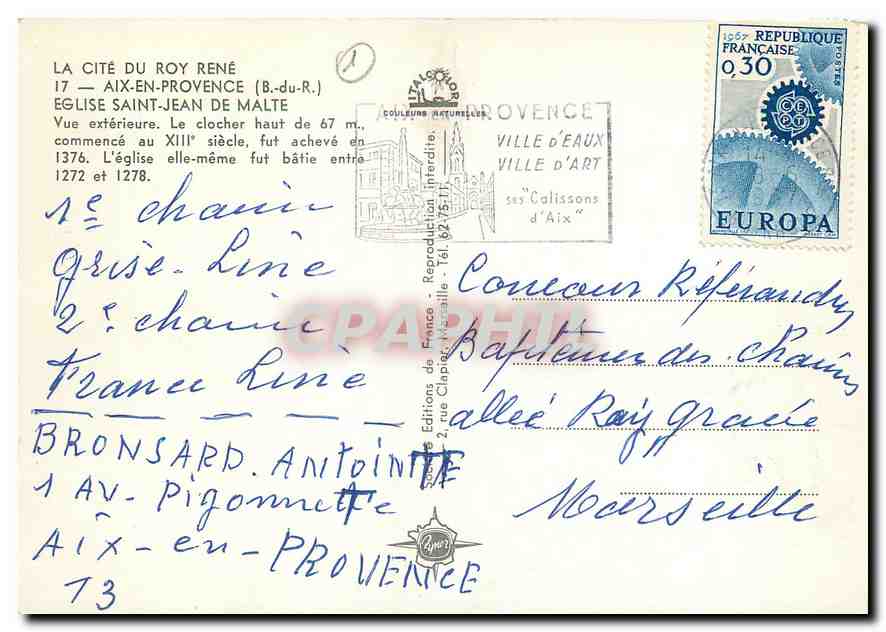 LA CITÉ DU ROY RENÉ
17 — AIX-EN-PROVENCE (B.-du-R.)
EGLISE SAINT-JEAN DE MALTE
Vue extérieure. Le clocher haut de 67 m.,
commencé au XIIIe siècle, fut achevé en
1376. L'église elle-même fut bâtie entre
1272 et 1278.
1
ITALCOLOR
COULEURS NATURELLES
AIX EN PROVENCE
VILLE d'EAUX
VILLE d'ART
ses "Calissons
d'Aix"
1967 REPUBLIQUE
FRANÇAISE
POSTES
0,30
CEPT
EUROPA
1e chain
Grise-Line
2e chain
France Line
BRONSARD. ANTOINETTE
1 AV- Pigonnette
Aix-en-PROVENCE
13
Société Editions de France - Reproduction interdite.
2, rue Clapier, Marseille - Tél. 62-75-11
Concour Référandum
des chains
allée Ray Gracie
Marseille
CPAPHIL